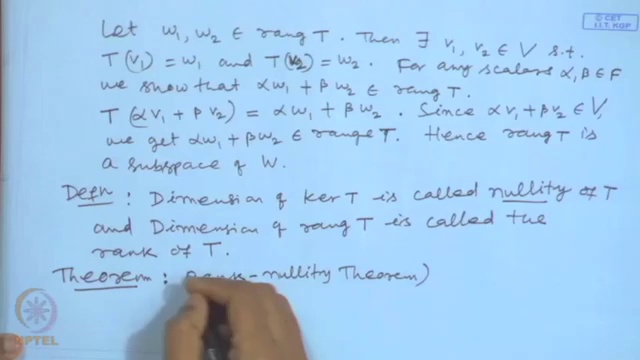 © CET
I.I.T. KGP
Let w₁, w₂ ∈ rang T. Then ∃ v₁, v₂ ∈ V s.t.
T(v₁) = w₁ and T(v₂) = w₂. For any scalars α, β ∈ F
we show that αw₁ + βw₂ ∈ rang T.
T(αv₁ + βv₂) = αw₁ + βw₂. Since αv₁ + βv₂ ∈ V,
we get αw₁ + βw₂ ∈ range T. Hence rang T is
a subspace of W.
Defn: Dimension of ker T is called nullity of T
and Dimension of rang T is called the
rank of T.
Theorem: -nullity Theorem)
NPTEL